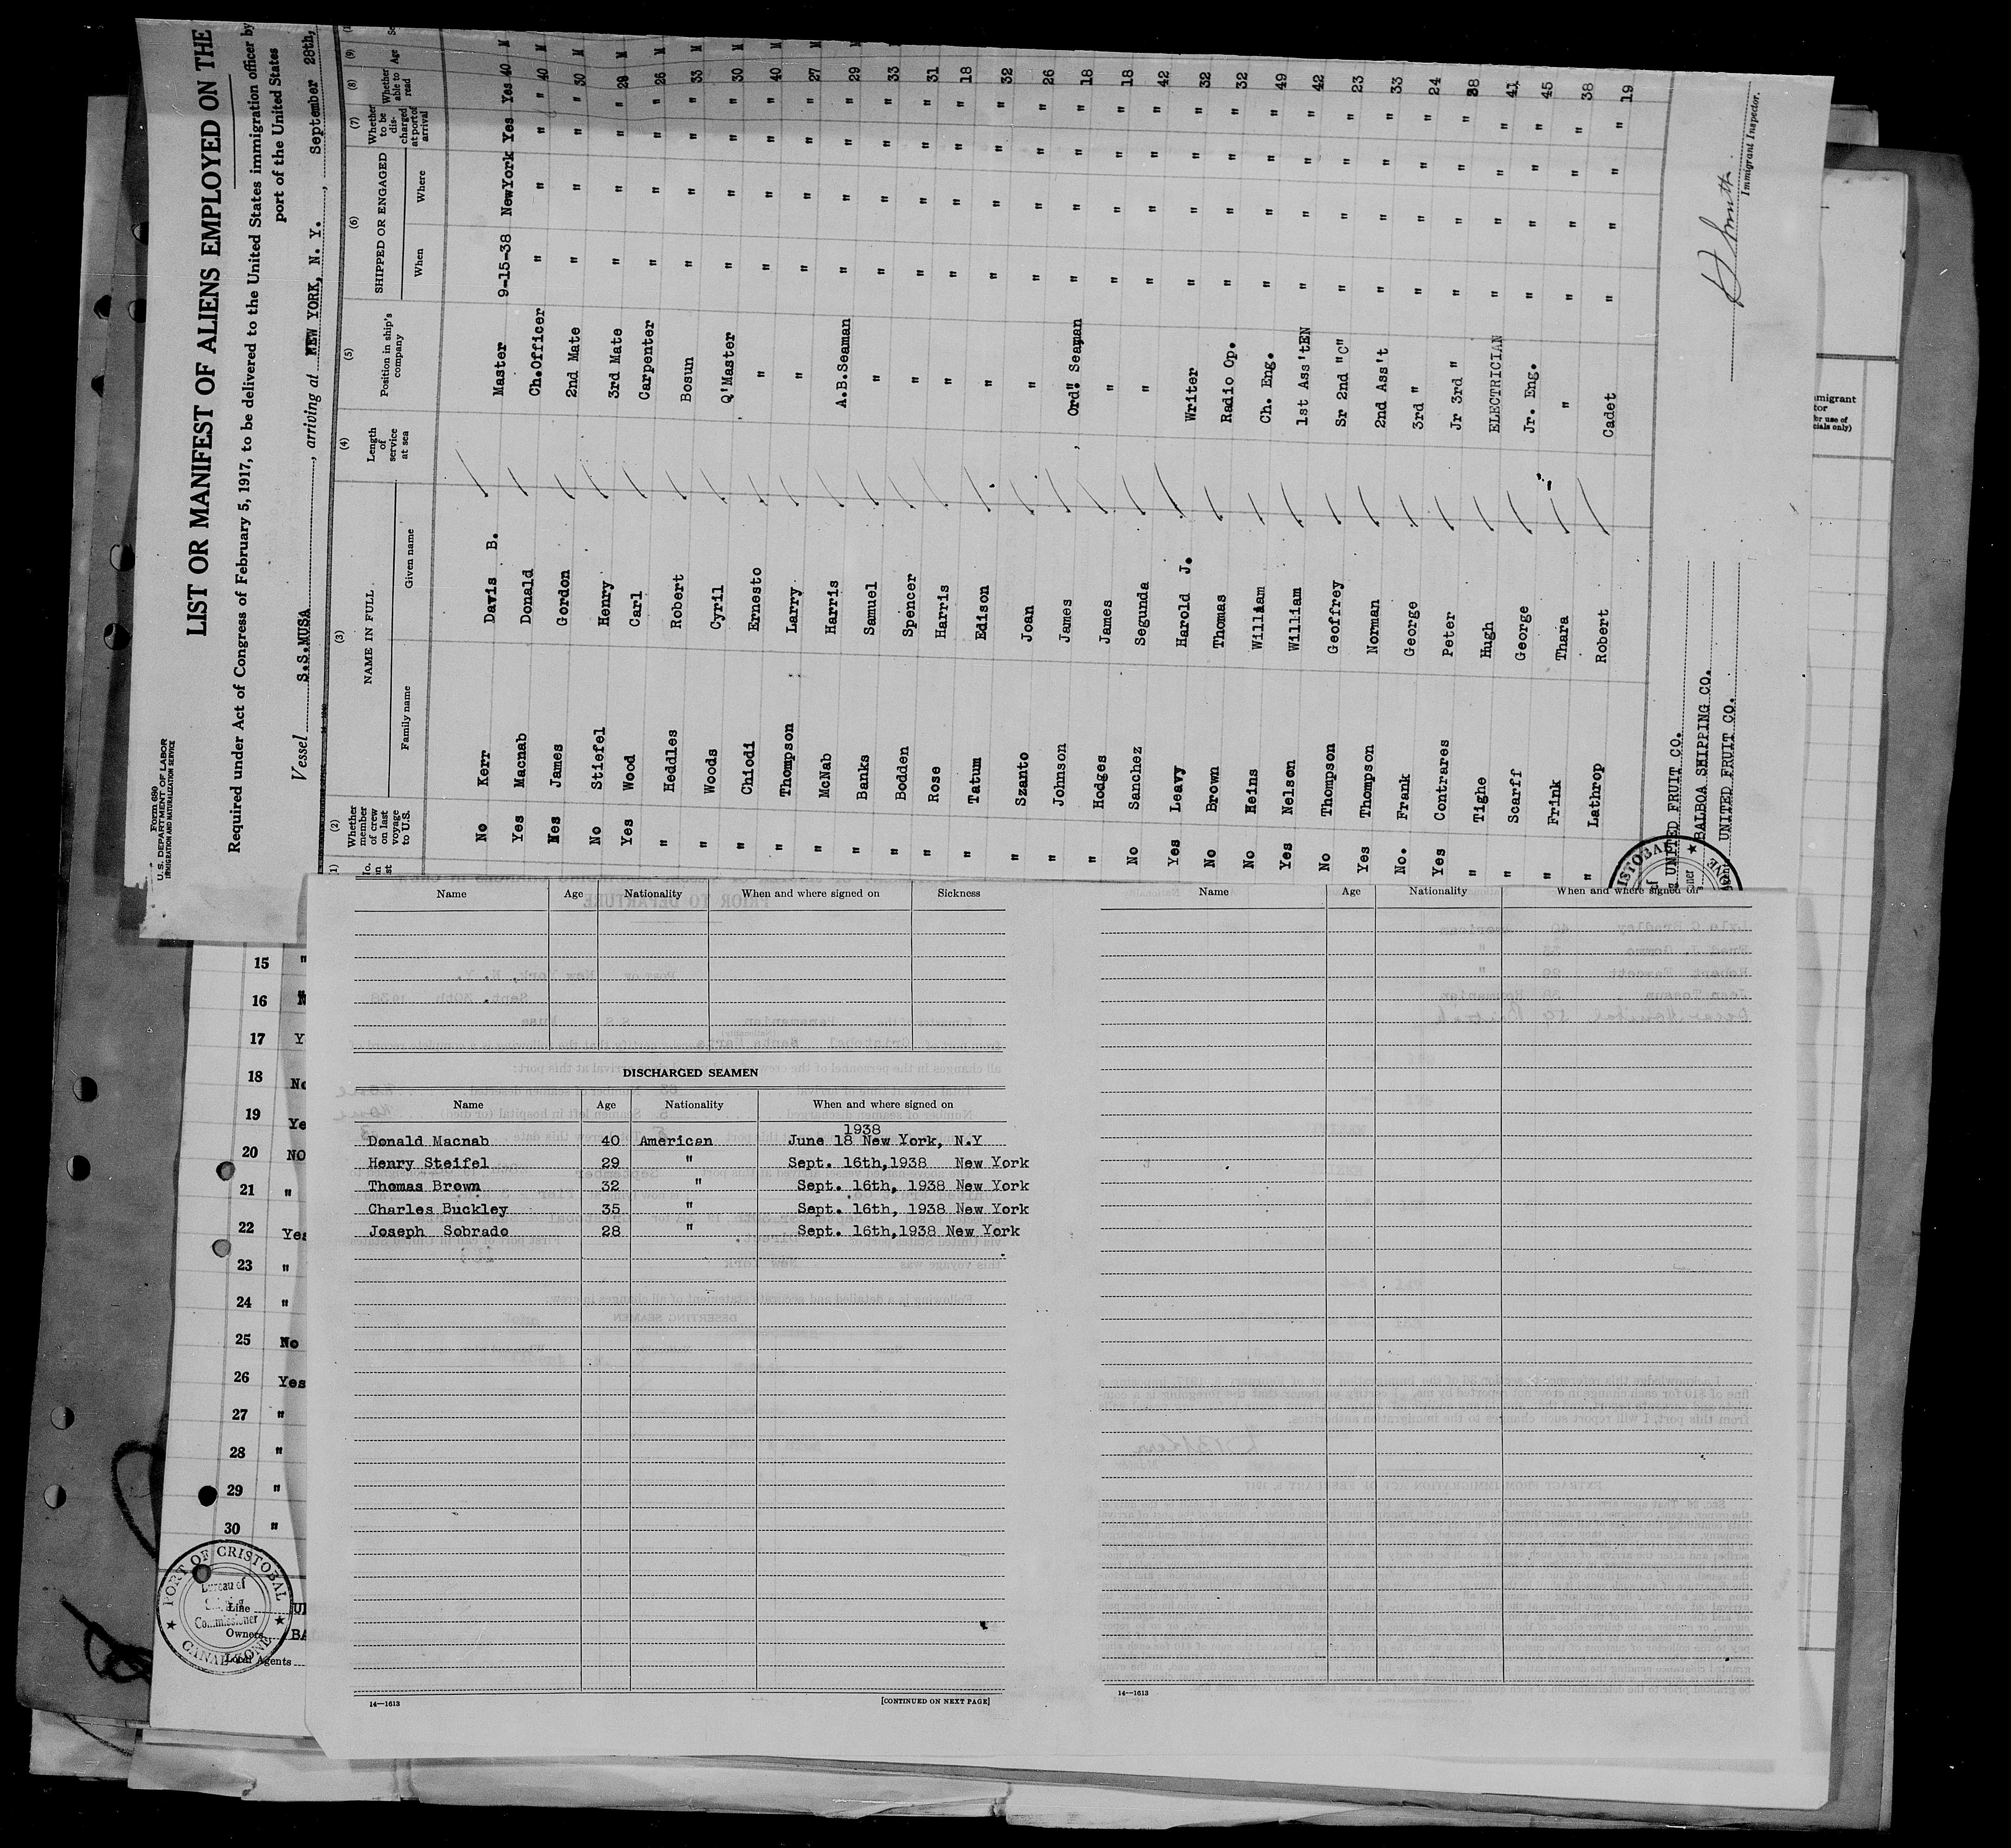 Form 689
U. S. DEPARTMENT OF LABOR
IMMIGRATION AND NATURALIZATION SERVICE
LIST OR MANIFEST OF ALIENS EMPLOYED ON THE
Required under Act of Congress of February 5, 1917, to be delivered to the United States immigration officer by
port of the United States
Vessel S.S.MUSA, arriving at NEW YORK, N. Y., September 28th,
(2) (3) (4) (5) (6) (7) (8) (9)
Whether member of crew on last voyage to U.S. NAME IN FULL Length of service at sea Position in ship's company SHIPPED OR ENGAGED Whether to be discharged at port of arrival Whether able to read Age
Family name Given name When Where
No Kerr Davis B. Master 9-15-38 NewYork Yes Yes 40 M
Yes Macnab Donald Ch.Officer " " " " 40 M
Yes James Gordon 2nd Mate " " " " 30 M
No Stiefel Henry 3rd Mate " " " " 29 M
Yes Wood Carl Carpenter " " " " 26 M
" Heddles Robert Bosun " " " " 33 M
" Woods Cyril Q'Master " " " " 30 M
" Chiodi Ernesto " " " " " 40 M
" Thompson Larry " " " " " 27 M
" McNab Harris A.B.Seaman " " " " 29 M
" Banks Samuel " " " " " 33 M
" Bodden Spencer " " " " " 31
" Rose Harris " " " " " 18
" Tatum Edison " " " " " 32
" Szanto Joan " " " " " 26
" Johnson James Ord" Seaman " " " " 18
" Hodges James " " " " " 18
No Sanchez Segunda " " " " " 42
Yes Leavy Harold J. Writer " " " " 32
No Brown Thomas Radio Op. " " " " 32
No Heins William Ch. Eng. " " " " 49
Yes Nelson William 1st Ass'tEN " " " " 42
No Thompson Geoffrey Sr 2nd "C" " " " " 23
Yes Thompson Norman 2nd Ass't " " " " 33
No. Frank George 3rd " " " " " 24
Yes Contrares Peter Jr 3rd " " " " " 38
" Tighe Hugh ELECTRICIAN " " " " 41
" Scarff George Jr. Eng. " " " " 45
" Frink Thara " " " " " 38
" Lathrop Robert Cadet " " " " 19
UNITED FRUIT CO.
BALBOA SHIPPING CO.
UNITED FRUIT CO.
H Smith
Immigrant Inspector.
15 "
16 N
17 Y
18 No
19 Ye
20 NO
21 "
22 Yes
23 "
24 "
25 No
26 Yes
27 "
28 "
29 "
30 "
PORT OF CRISTOBAL
Bureau of
Commissioner
CANAL ZONE
Line
Owners BA
Local Agents
Name Age Nationality When and where signed on Sickness
DISCHARGED SEAMEN
Name Age Nationality When and where signed on
1938
Donald Macnab 40 American June 18 New York, N.Y
Henry Steifel 29 " Sept. 16th,1938 New York
Thomas Brown 32 " Sept. 16th, 1938 New York
Charles Buckley 35 " Sept. 16th, 1938 New York
Joseph Sobrado 28 " Sept. 16th,1938 New York
14—1613 [CONTINUED ON NEXT PAGE]
Name Age Nationality When and where signed on
14—1613